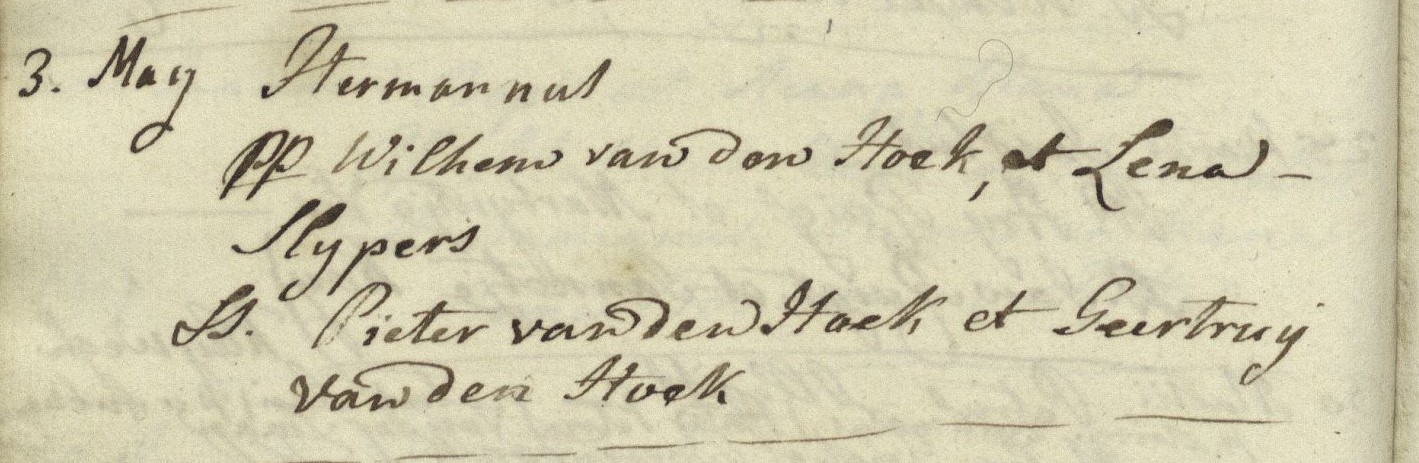 3. May Hermannus
pp Wilhem van den Hoek, et Lena -
Slypers
SS. Pieter van den Hoek et Geertruy
van den Hoek